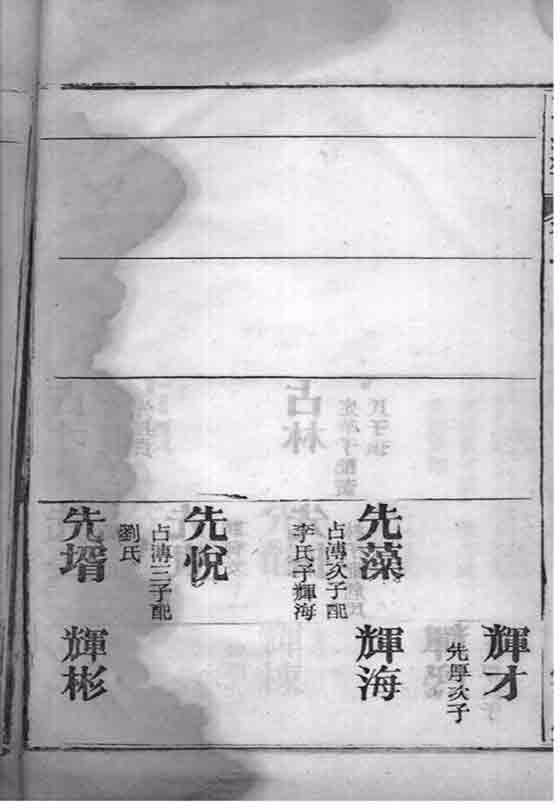 輝才
先厚次子
先藻
輝海
占溥次子配
李氏子輝海
先悅
占溥三子配
劉氏
先壻
輝彬